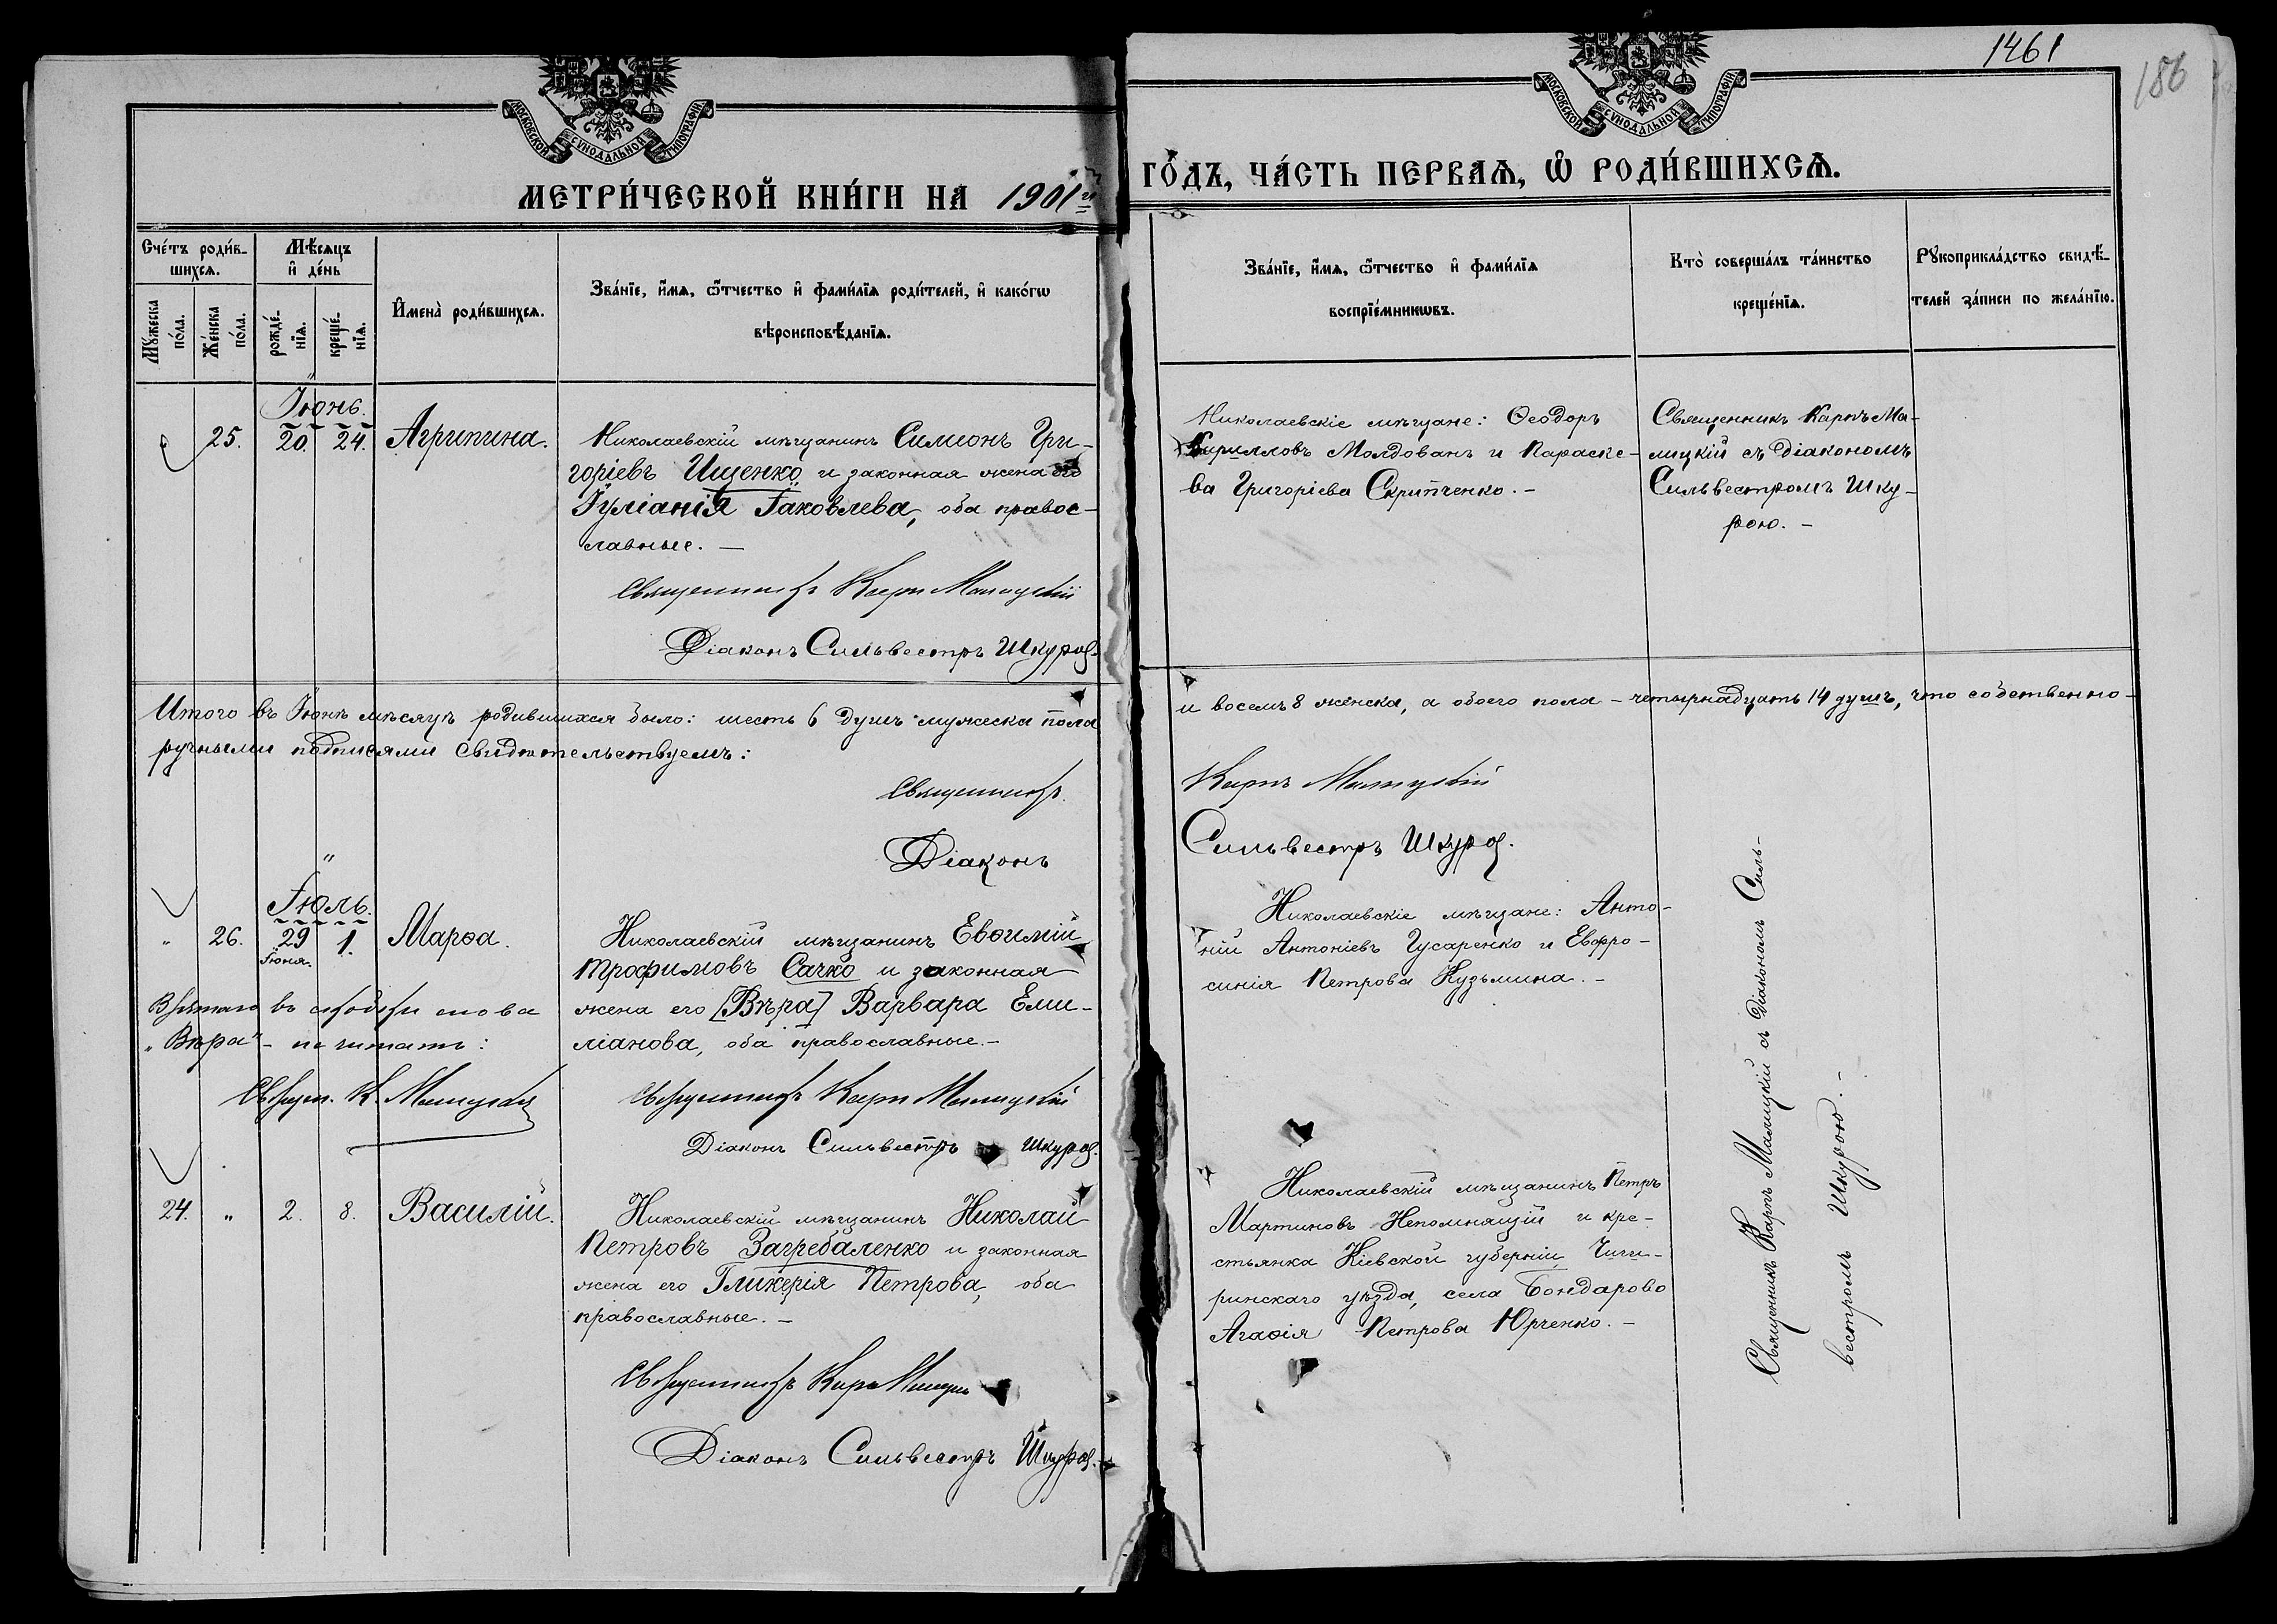 1461
186
МОСКОВСКОЙ СѴНОДАЛЬНОЙ ТИПОГРАФІИ
МОСКОВСКОЙ СѴНОДАЛЬНОЙ ТИПОГРАФІИ
МЕТРИ́ЧЕСКОЙ КНИ́ГИ НА 1901й
ГО́ДЪ, ЧА́СТЬ ПЕРВАѦ, Ѡ҆ РОДИ́ВШИХСѦ.
Сче́тъ роди́в-
шихсѧ.
Мѣ́сѧцъ
и҆ де́нь
Мꙋ́жеска по́ла.
Же́нска по́ла.
рожде́-нїѧ.
креще́-нїѧ.
И҆мена̀ роди́вшихсѧ.
Зва́нїе, и҆́мѧ, ѻ҆́тчество и҆ фами́лїѧ роди́телей, и҆ како́гѡ
вѣроисповѣ́данїѧ.
Зва́нїе, и҆́мѧ, ѻ҆́тчество и҆ фами́лїѧ
воспрїе́мникѡвъ.
Кто̀ соверша́лъ та́инство
креще́нїѧ.
Рꙋкоприкла́дство свидѣ́-
телей за́писи по жела́нїю.
Іюнь.
25. 20. 24. Агрипина.
Николаевскій мѣщанинъ Симіонъ Гри-
горіевъ Ищенко и законная жена его
Іуліанія Іаковлева, оба правос-
славные. —
Священникъ Карпъ Малицкій
Діаконъ Сильвестръ Шкура.
Николаевскіе мѣщане: Ѳеодоръ
Кирилловъ Молдованъ и Параске-
ва Григоріева Скрипченко. —
Священникъ Карпъ Ма-
лицкій съ діакономъ
Сильвестромъ Шку-
рою. —
Итого въ Іюнѣ мѣсяцѣ родившихся было: шесть 6 душъ мужеска пола
и восемь 8 женска, а обоего пола — четырнадцать 14 душъ, что собственно-
ручными подписями свидѣтельствуемъ:
Священникъ Карпъ Малицкій
Діаконъ Сильвестръ Шкура.
Іюль.
" 26. 29 Іюня. 1. Марѳа.
Николаевскій мѣщанинъ Евѳимій
Трофимовъ Сачко и законная
жена его [Вѣра] Варвара Еми-
ліанова, оба православные. —
Взятаго въ скобки слова
"Вѣра" — не читать:
Священ. К. Малицкій
Священникъ Карпъ Малицкій
Діаконъ Сильвестръ Шкура.
Николаевскіе мѣщане: Анто-
ній Антоніевъ Гусаренко и Евфро-
синія Петрова Кузьмина. —
24. " 2. 8. Василій.
Николаевскій мѣщанинъ Николай
Петровъ Загребаленко и законная
жена его Гликерія Петрова, оба
православные. —
Священникъ Карпъ
Діаконъ Сильвестръ Шкура.
Николаевскій мѣщанинъ Петръ
Мартиновъ Непомнящій и кре-
стьянка Кіевской губерніи, Чиги-
ринскаго уѣзда, села Бондарово
Агаѳія Петрова Юрченко. —
Священникъ Карпъ Малицкій съ Діакономъ Силь-
вестромъ Шкурою. —